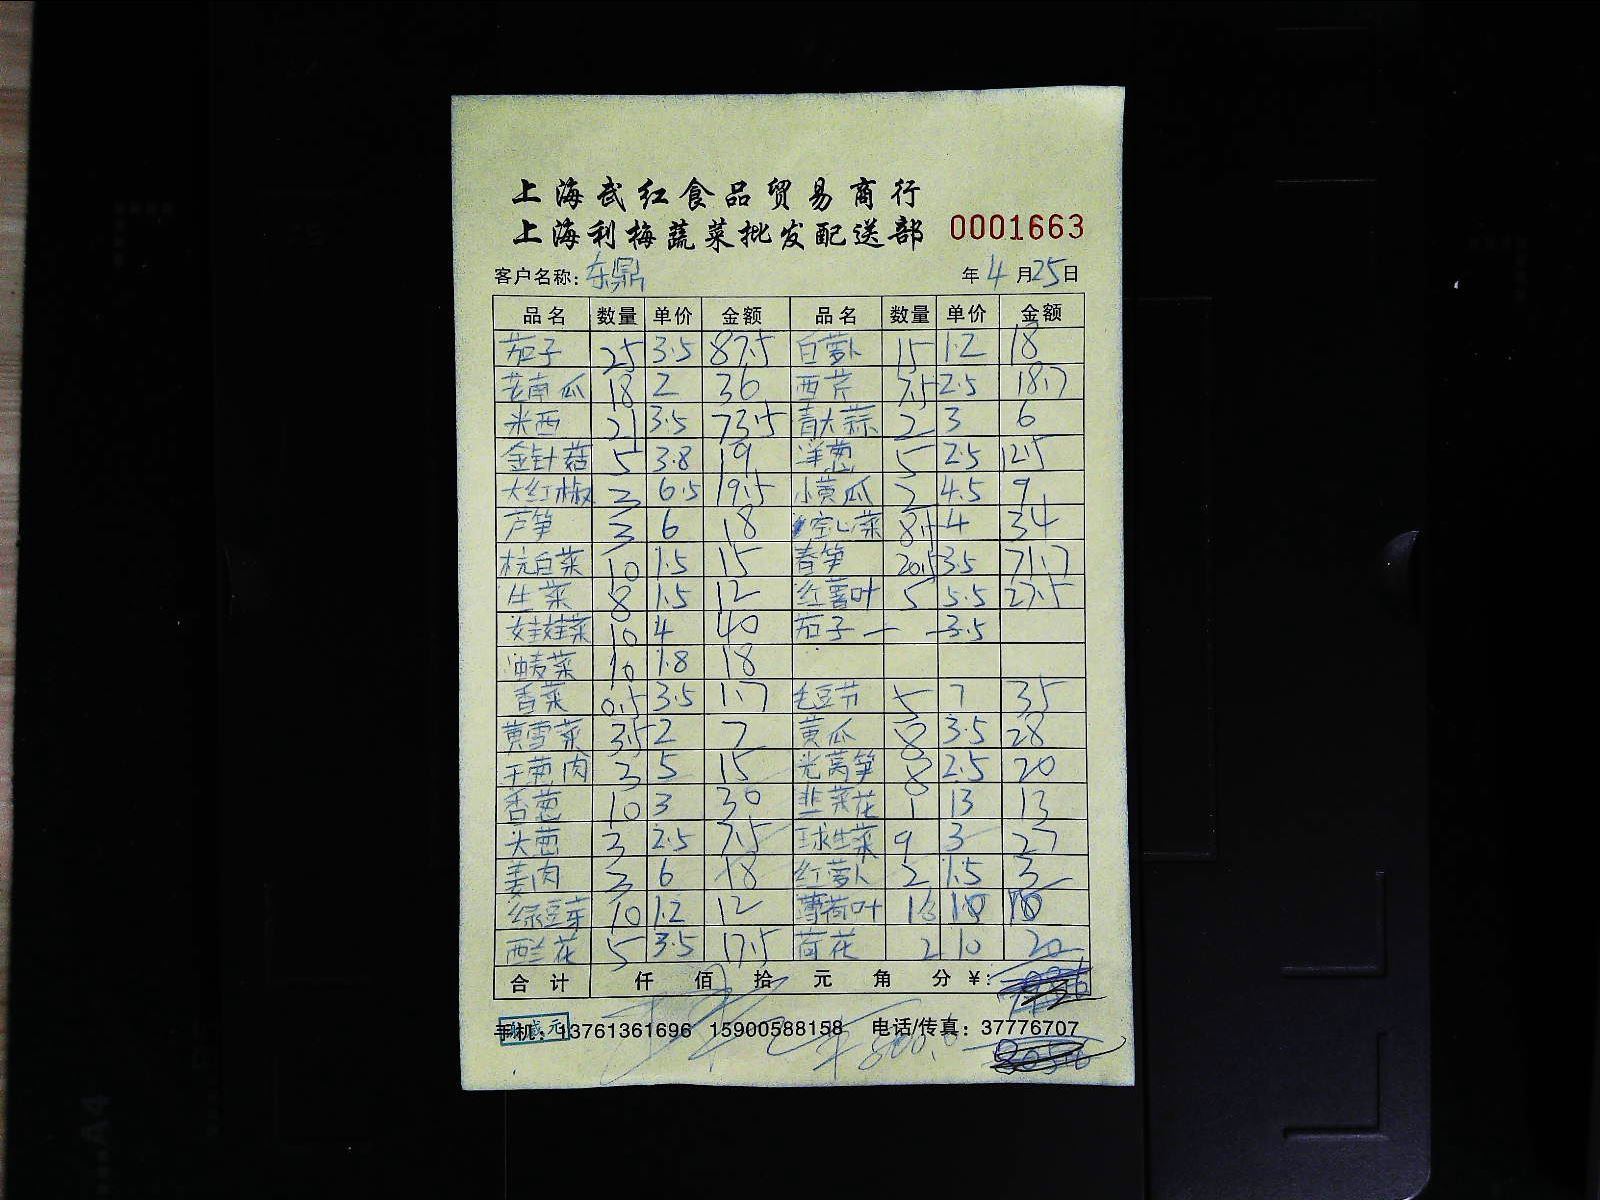 上海武红食品贸易商行
上海利梅蔬菜批发配送部 0001663
客户名称: 东鼎 年 4 月 25 日
品名 数量 单价 金额 品名 数量 单价 金额
茄子 25 3.5 87.5 白萝卜 15 1.2 18
老南瓜 18 2 36 西芹 7.5 2.5 18.7
米西 21 3.5 73.5 青大蒜 2 3 6
金针菇 5 3.8 19 洋葱 5 2.5 12.5
大红椒 3 6.5 19.5 小黄瓜 2 4.5 9
芦笋 3 6 18 空心菜 8.5 4 34
杭白菜 10 1.5 15 春笋 20.5 3.5 71.7
生菜 8 1.5 12 红薯叶 5 5.5 27.5
娃娃菜 10 4 40 茄子 — -3.5
油麦菜 10 1.8 18
香菜 0.5 3.5 1.7 毛豆节 5 7 35
黄雪菜 3.5 2 7 黄瓜 8 3.5 28
干葱肉 3 5 15 光莴笋 8 2.5 20
香葱 10 3 30 韭菜花 1 13 13
大葱 3 2.5 7.5 球生菜 9 3 27
姜肉 3 6 18 红萝卜 2 1.5 3
绿豆芽 10 1.2 12 薄荷叶
西兰花 5 3.5 17.5 荷花 2 10 20
合计 仟 佰 拾 元 角 分 ¥:
手机: 13761361696 15900588158 电话/传真: 37776707